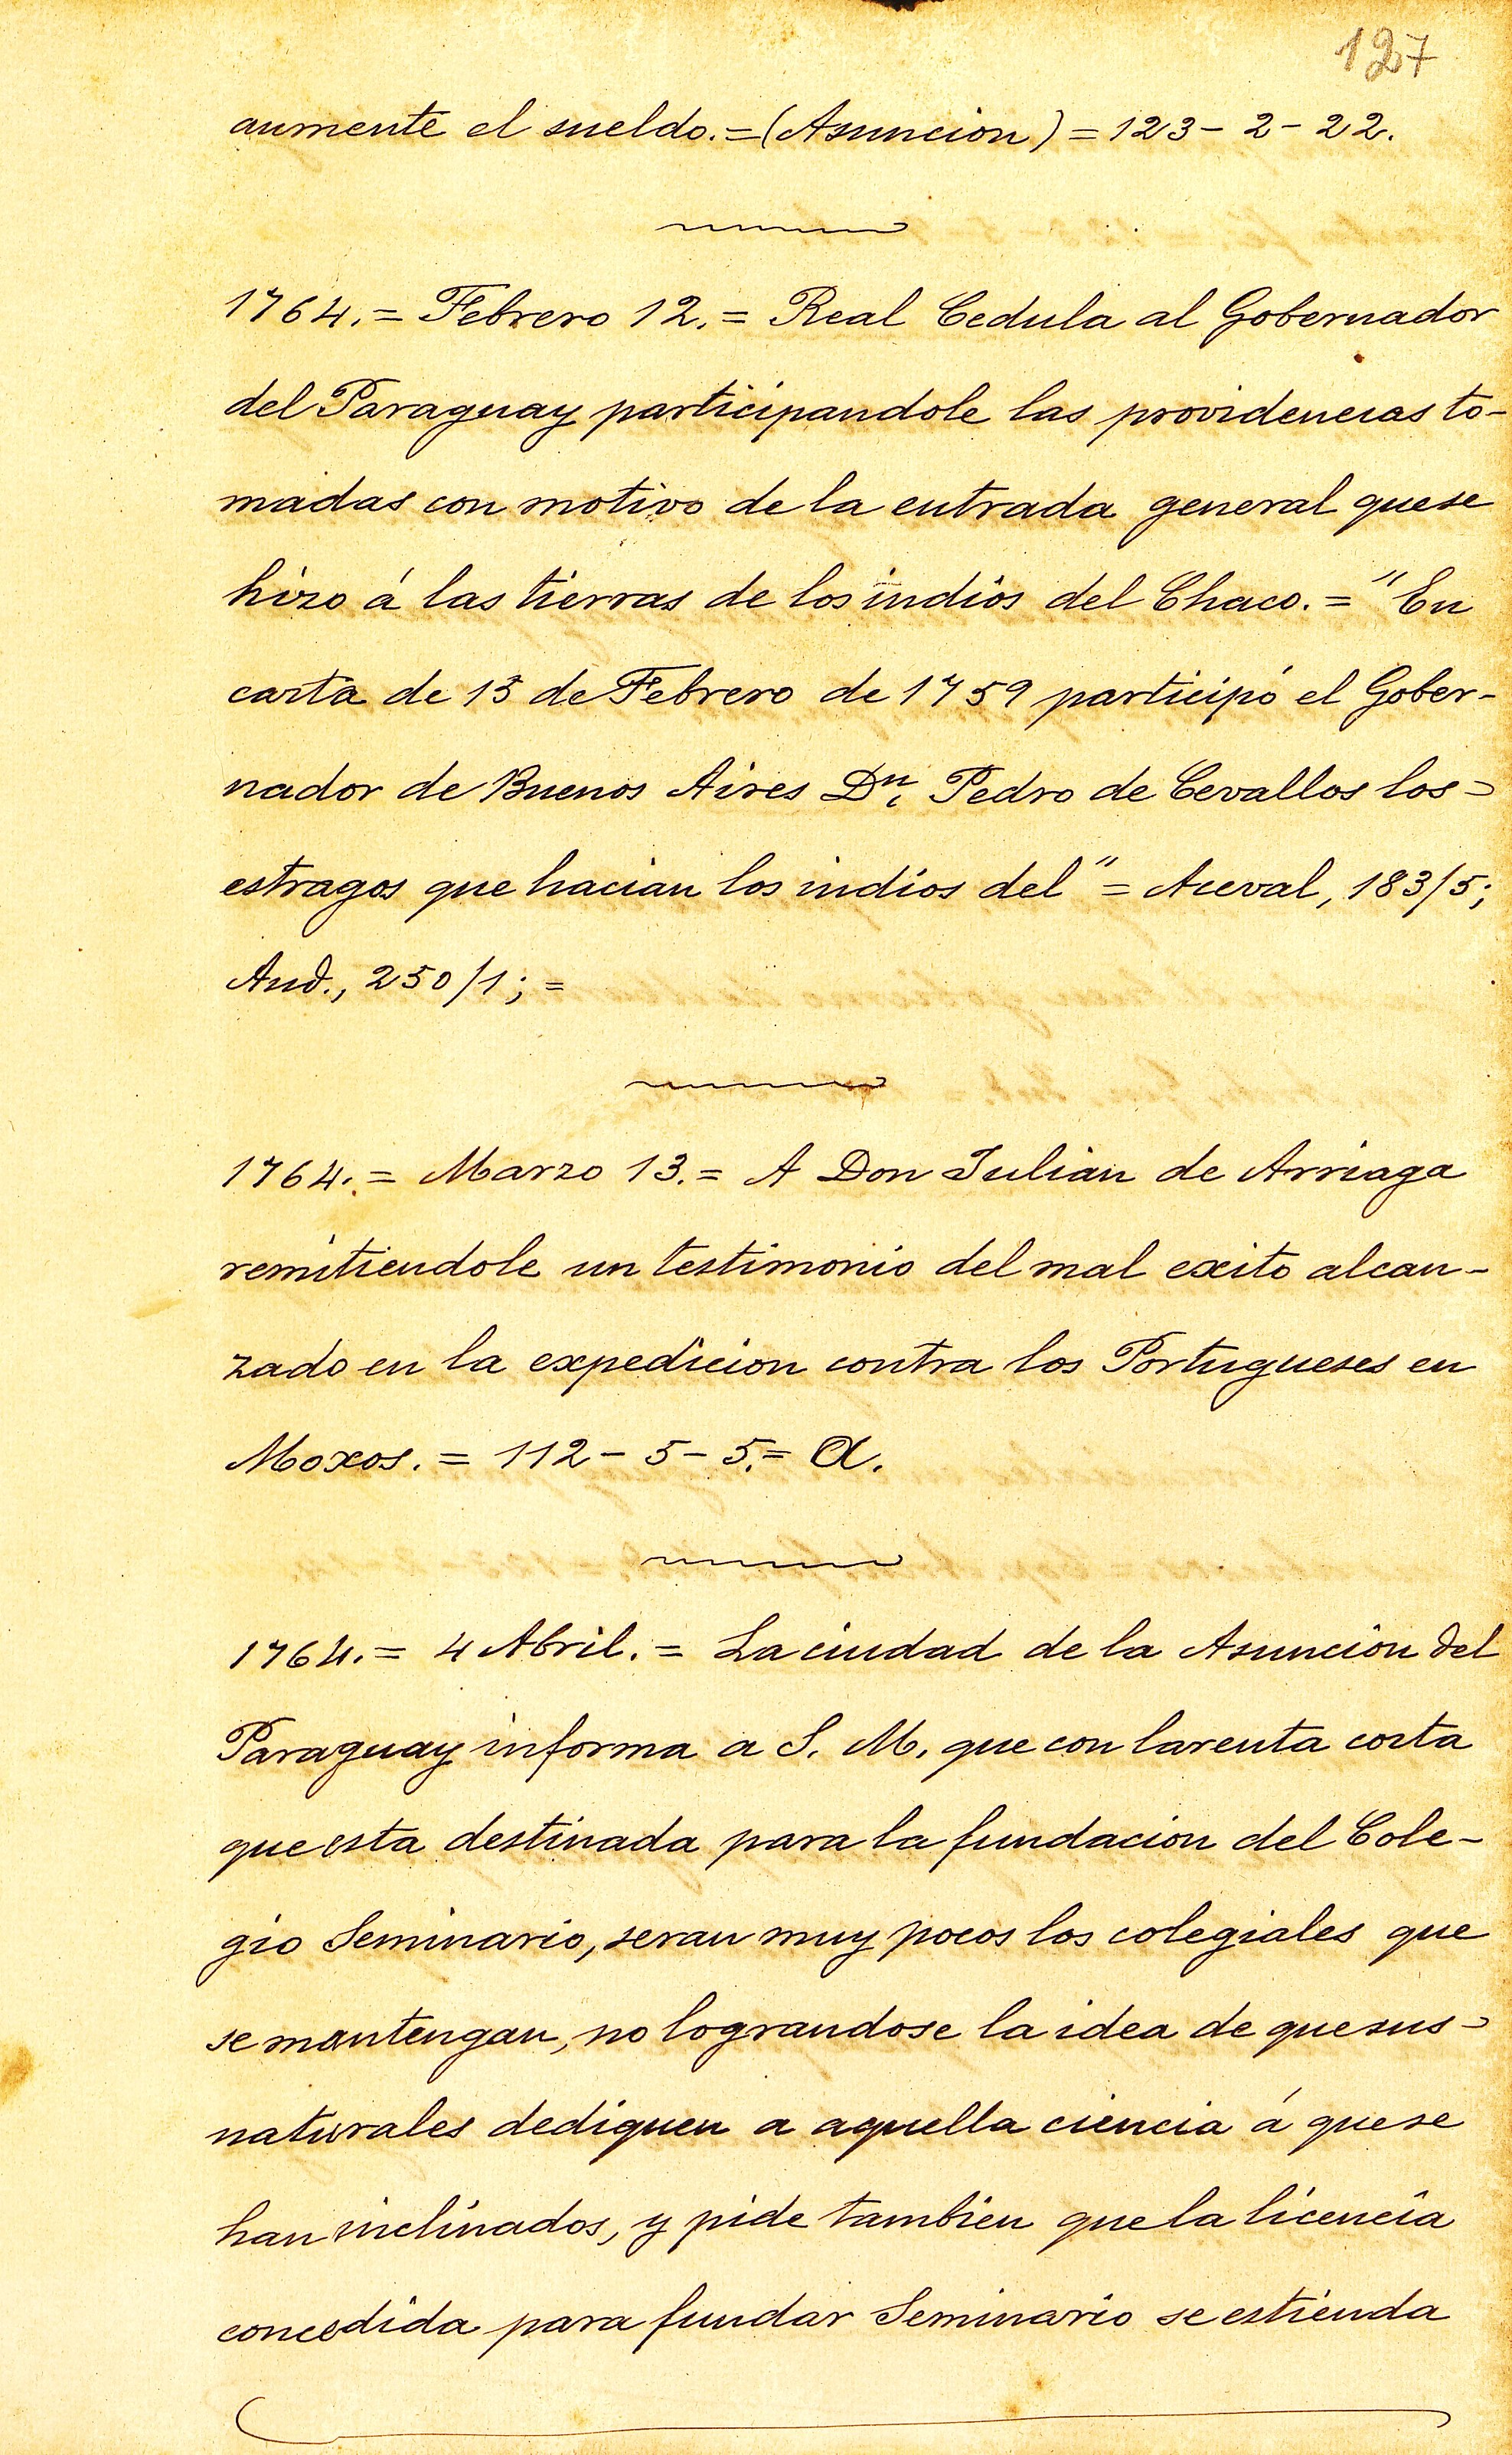 127
aumente el sueldo.=(Asuncion)=123-2-22.
1764.= Febrero 12.= Real Cedula al Gobernador
del Paraguay participandole las providencias to-
madas con motivo de la entrada general que se
hizo á las tierras de los indios del Chaco.= "En
carta de 13 de Febrero de 1759 participó el Gober-
nador de Buenos Aires Dn. Pedro de Cevallos los=
estragos que hacian los indios del"= Aceval, 183/5;
Aud., 250/1;=
1764.= Marzo 13.= A Don Julian de Arriaga
remitiendole un testimonio del mal exito alcan-
zado en la expedicion contra los Portugueses en
Moxos.= 112-5-5.= A.
1764.= 4 Abril.= La ciudad de la Asuncion del
Paraguay informa a S. M. que con la renta corta
que esta destinada para la fundacion del Cole-
gio Seminario, seran muy pocos los colegiales que
se mantengan, no lograndose la idea de que sus=
naturales dediquen a aquella ciencia á que se
han inclinados, y pide tambien que la licencia
concedida para fundar Seminario se estienda